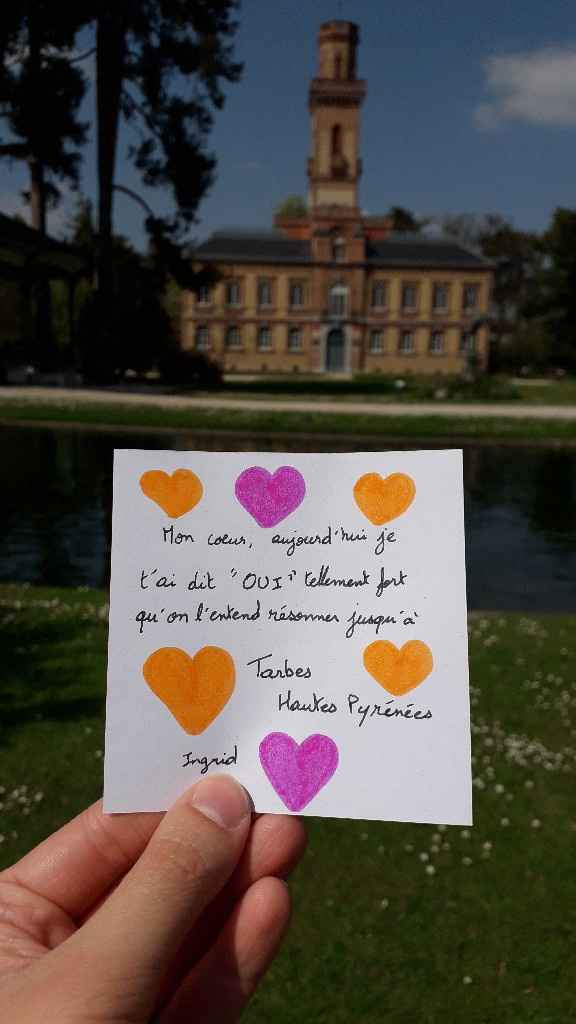 Mon coeur, aujourd'hui je
t'ai dit "OUI" tellement fort
qu'on l'entend résonner jusqu'à
Tarbes
Hautes Pyrénées
Ingrid